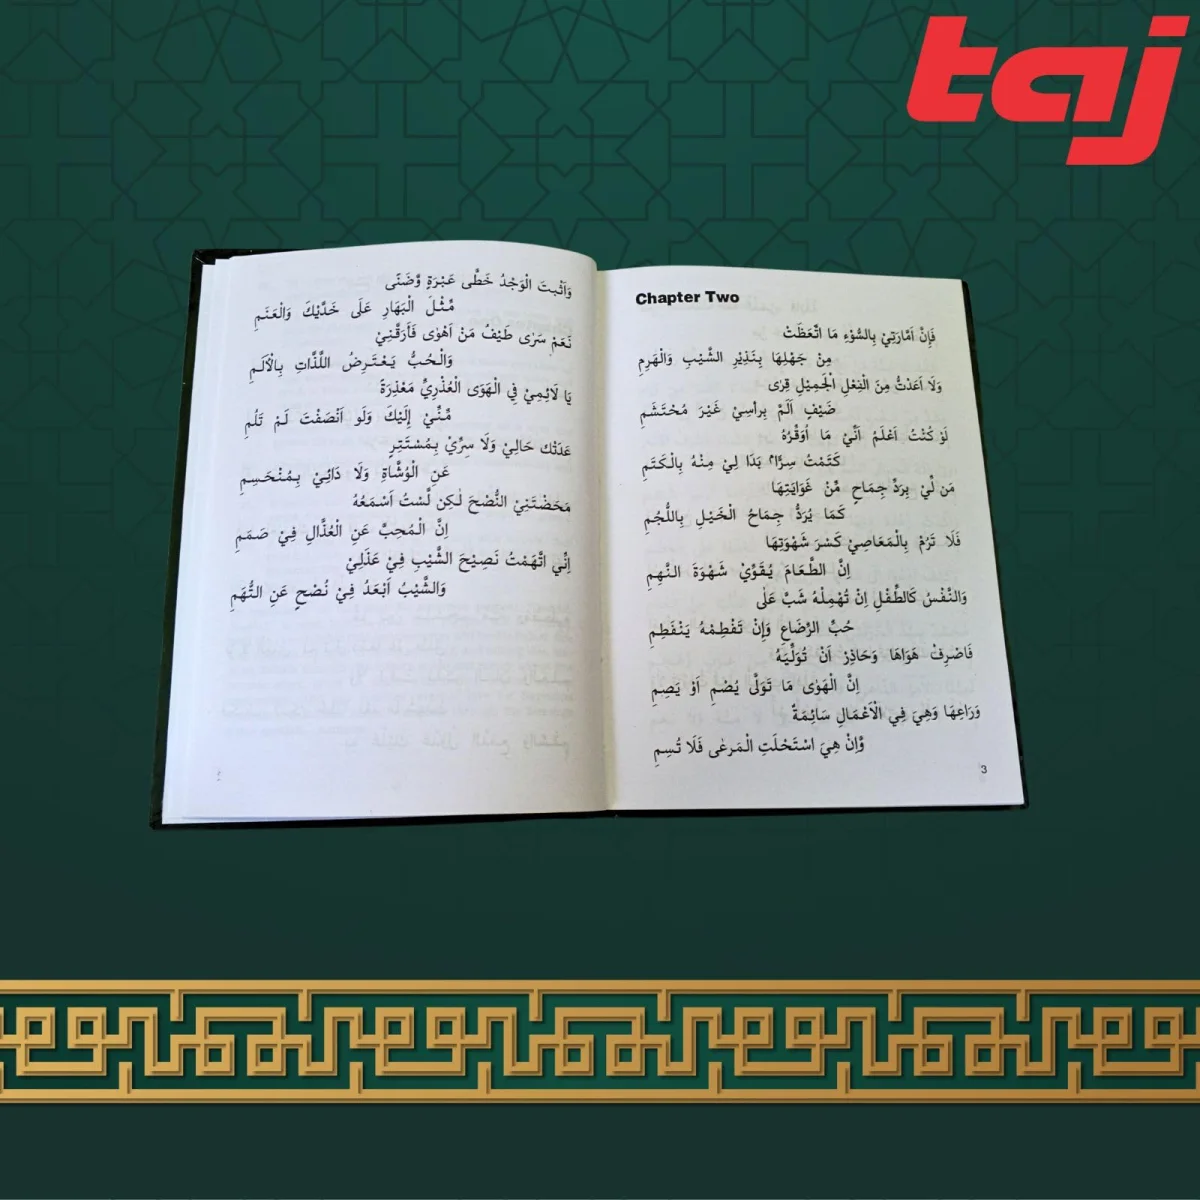 taj
وَاَثْبتَ الْوَجْدُ خَطَّى عَبْرَةٍ وَّضَنًى
مِّثْلَ الْبَهَارِ عَلَى خَدَّيْكَ وَالْعَنَمِ
نَعَمْ سَرٰى طَيْفُ مَنْ اَهْوٰى فَأَرَّقَنِيْ
وَالْحُبُّ يَعْتَرِضُ اللَّذَّاتِ بِالْاَلَمِ
يَا لَائِمِيْ فِي الْهَوَى الْعُذْرِيِّ مَعْذِرَةً
مِّنِّيْ إِلَيْكَ وَلَو اَنْصَفْتَ لَمْ تَلُمِ
عَدَتْكَ حَالِيْ وَلَا سِرِّيْ بِمُسْتَتِرٍ
عَنِ الْوُشَاةِ وَلَا دَائِيْ بِمُنْحَسِمِ
مَحَضْتَنِيْ النُّصْحَ لٰكِن لَّسْتُ اَسْمَعُهُ
اِنَّ الْمُحِبَّ عَنِ الْعُذَّالِ فِيْ صَمَمِ
اِنِّي اتَّهَمْتُ نَصِيْحَ الشَّيْبِ فِيْ عَذَلِيْ
وَالشَّيْبُ اَبْعَدُ فِيْ نُصْحٍ عَنِ التُّهَمِ
Chapter Two
فَاِنَّ اَمَّارَتِيْ بِالسُّوْءِ مَا اتَّعَظَتْ
مِنْ جَهْلِهَا بِنَذِيْرِ الشَّيْبِ وَالْهَرِمِ
وَلَا اَعَدْتُ مِنَ الْفِعْلِ الْجَمِيْلِ قِرٰى
ضَيْفٍ اَلَمَّ بِرأسِيْ غَيْرَ مُحْتَشَمِ
لَوْ كُنْتُ اَعْلَمُ اَنِّيْ مَا اُوَقِّرُهُ
كَتَمْتُ سِرًّا بَدَا لِيْ مِنْهُ بِالْكَتَمِ
مَن لِّيْ بِرَدِّ جِمَاحٍ مِّنْ غَوَايَتِهَا
كَمَا يُرَدُّ جِمَاحُ الْخَيْلِ بِاللُّجُمِ
فَلَا تَرُمْ بِالْمَعَاصِيْ كَسْرَ شَهْوَتِهَا
اِنَّ الطَّعَامَ يُقَوِّيْ شَهْوَةَ النَّهِمِ
وَالنَّفْسُ كَالطِّفْلِ اِنْ تُهْمِلْهُ شَبَّ عَلٰى
حُبِّ الرَّضَاعِ وَاِنْ تَفْطِمْهُ يَنْفَطِمِ
فَاصْرِفْ هَوَاهَا وَحَاذِرْ اَنْ تُوَلِّيَهُ
اِنَّ الْهَوٰى مَا تَوَلّٰى يُصْمِ اَوْ يَصِمِ
وَرَاعِهَا وَهِيَ فِي الْاَعْمَالِ سَائِمَةٌ
وَّاِنْ هِيَ اسْتَحْلَتِ الْمَرعٰى فَلَا تُسِمِ
3